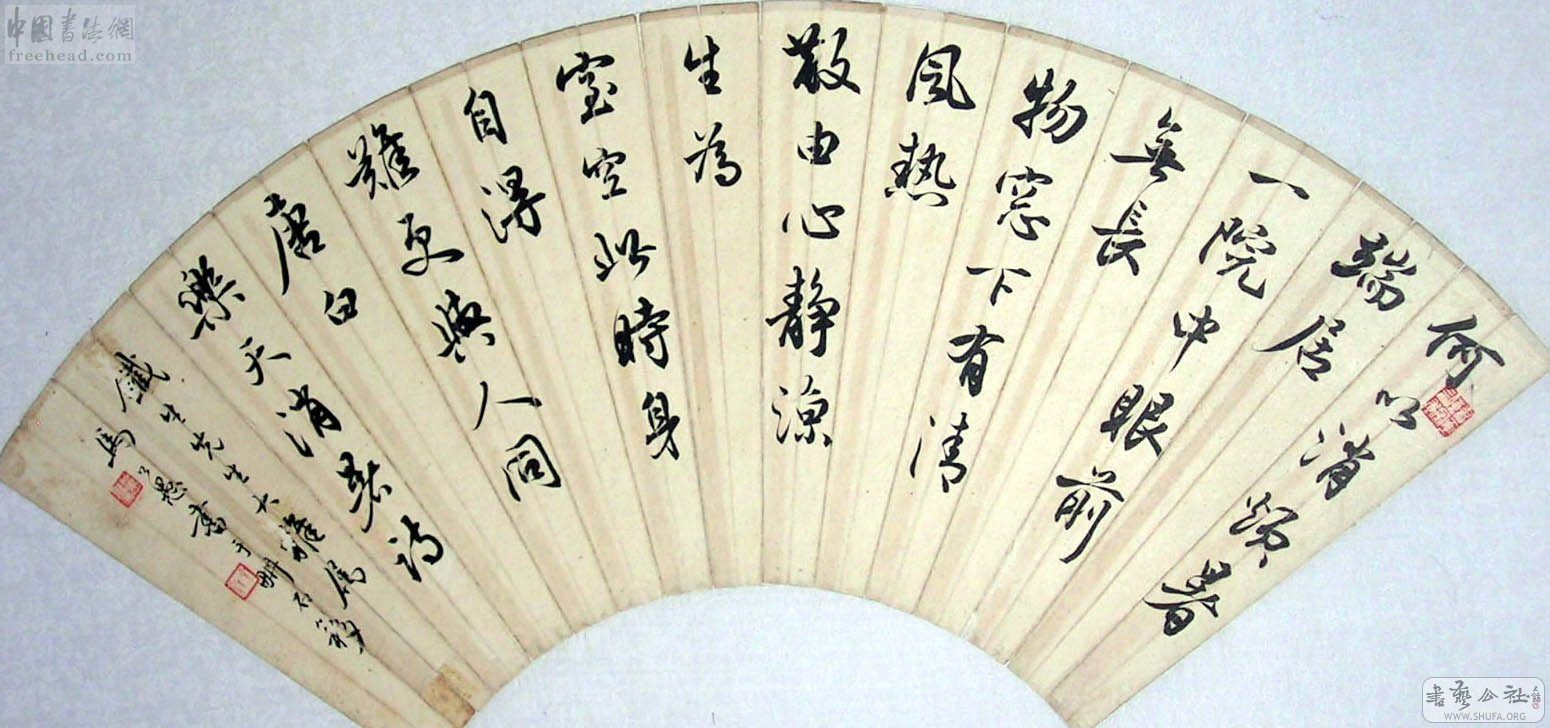 中國書法網
freehead.com
何以消煩暑
端居
一院中眼前
無長
物窓下有清
風熱
散由心静涼
生為
室空此時身
自得
難更與人同
唐白
樂天消暑詩
鐵生先生大雅屬
馬公愚書于畊石簃
書藝公社
WWW.SHUFA.ORG